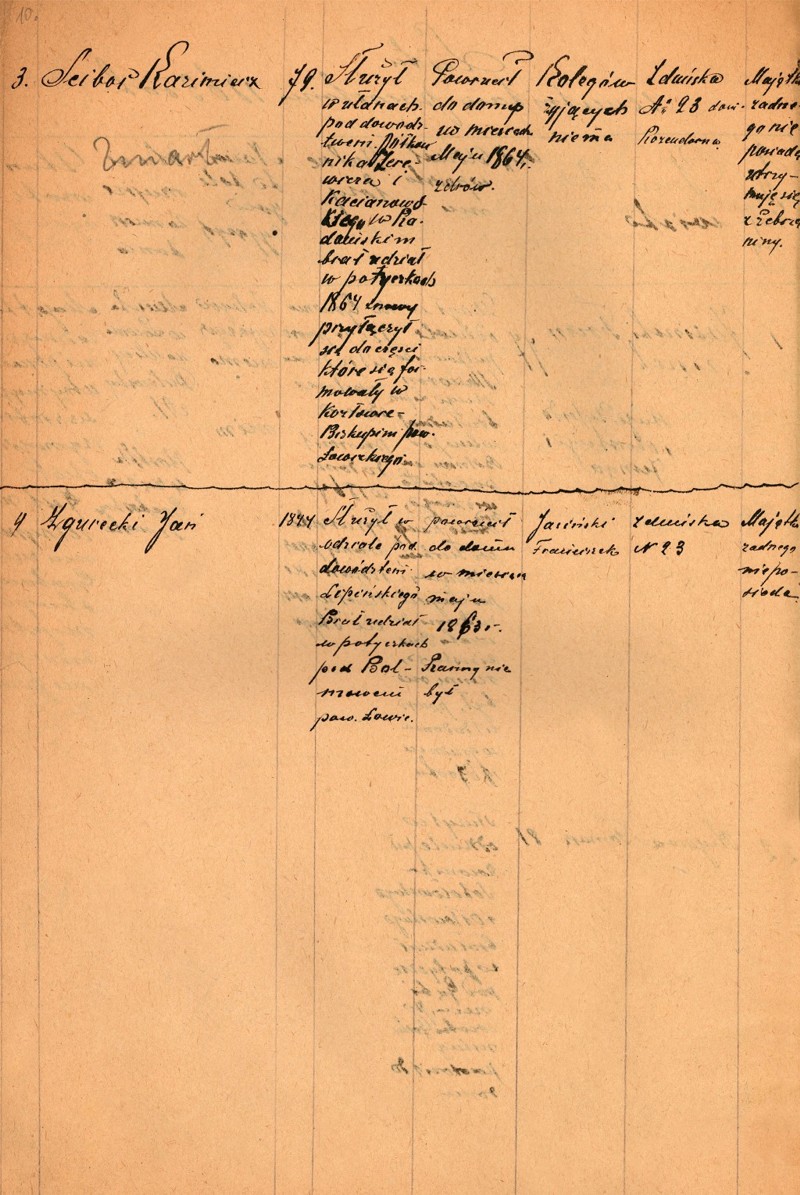 10.
3.
Scibor Kazimierz
Zmarł
79.
Służył
w ułanach
pod dowódz-
twem Półkow
nika Zere-
wicza i
Kacianows-
kiego w Ra-
domskim
brał udział
w potyczkach
1864 znowu
przyłączył
się do części
które się for-
mowały w
Kozłowie-
Biskupim pow.
Łowickiego
Powrócił
do domu
w miesiącu
Maju 1864 r.
zdrów.
Kolegów
żyjących
niema
Zduńska
No 23 dom
Rozendorna
Majątku
żadne-
go nie
posiada
utrzy-
muje się
z żebra-
niny.
4
Zgurecki Jan
1844
Służył w
odziale pod
dowództwem
Lepińskiego
Brał udział
w potyczkach
pod Bol-
imowem
pow. Łowic.
powrócił
do domu
w miesiącu
maju
1863 r.
Ranny nie
był
Jasiński
Franciszek
Zduńska
N 23
Majątku
żadnego
niepo-
siada